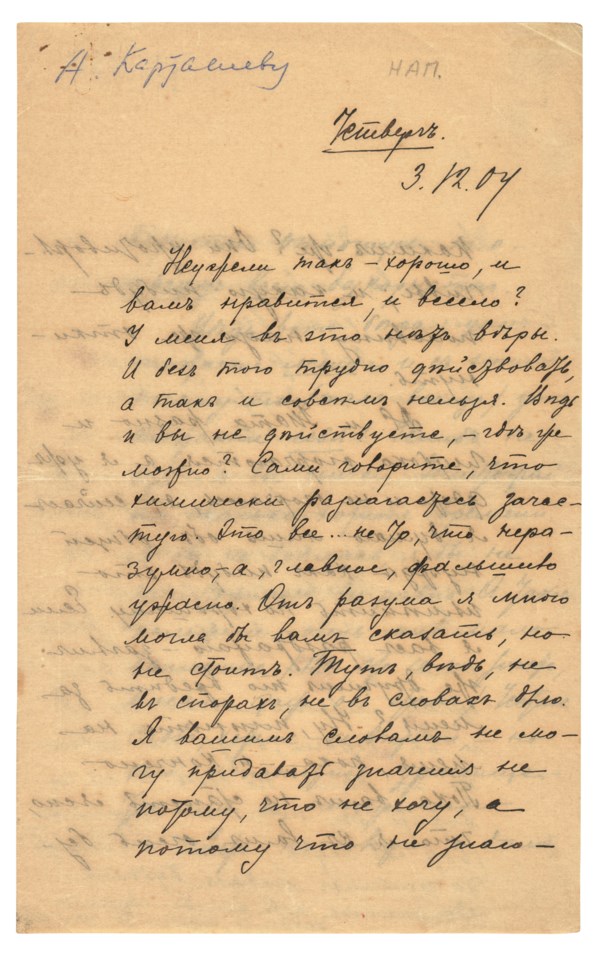 А. Карташеву
НАП.
Четвергъ.
3.12.07
Неужели такъ – хорошо, и
вамъ нравится, и весело?
У меня въ это нѣтъ вѣры.
И безъ того трудно дѣйствовать,
а такъ и совсѣмъ нельзя. Вѣдь
и вы не дѣйствуете, – гдѣ же
можно? Сами говорите, что
химически разлагаетесь зачас-
тую. Это все... не то, что нера-
зумно, – а, главное, фальшиво
ужасно. Отъ разума я много
могла бъ вамъ сказать, но
не стоитъ. Тутъ, вѣдь, не
въ спорахъ, не въ словахъ дѣло.
Я вашимъ словамъ не мо-
гу придавать значенія не
потому, что не хочу, а
потому что не знаю –